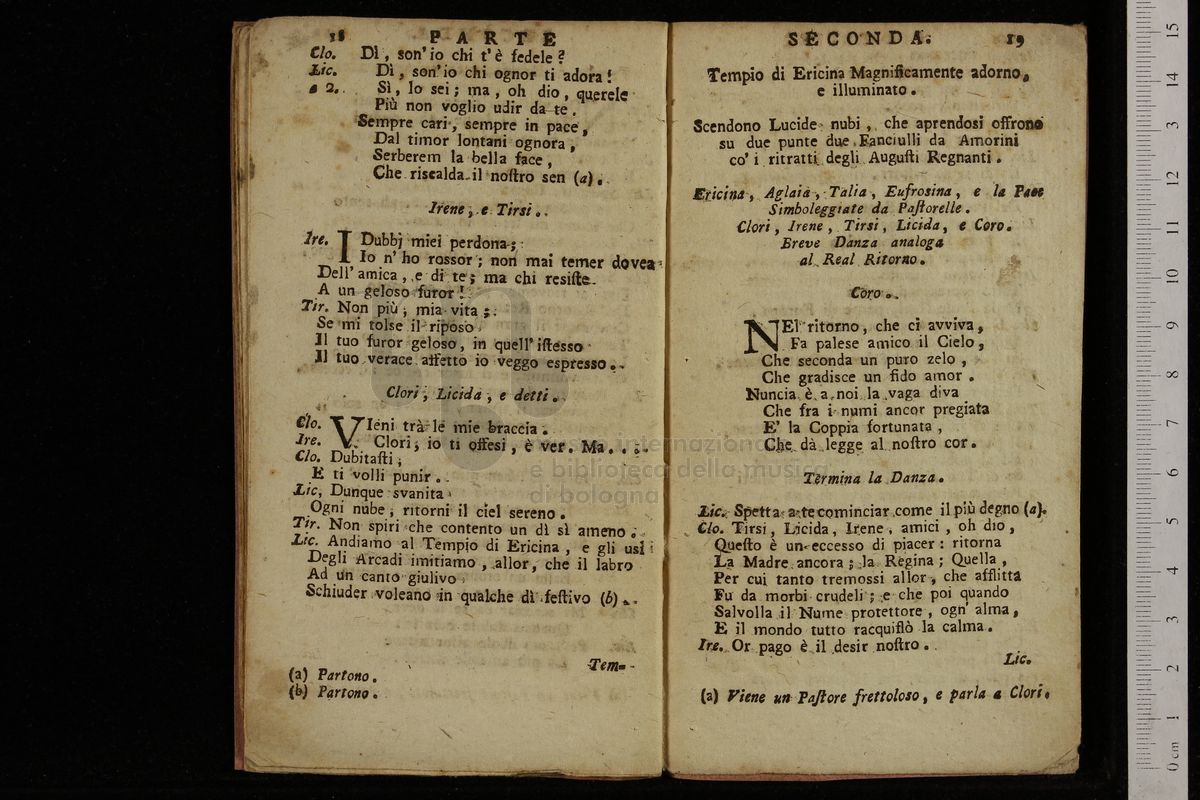 18 PARTE
Clo. Dì, son' io chi t' è fedele?
Lic. Dì, son' io chi ognor ti adora!
a 2. Sì, lo sei; ma, oh dio, querele
Più non voglio udir da te.
Sempre cari, sempre in pace,
Dal timor lontani ognora,
Serberem la bella face,
Che riscalda il noſtro sen (a).
Irene, e Tirsi.
Ire. I Dubbj miei perdona;
Io n' ho rossor; non mai temer dovea
Dell' amica, e di te; ma chi resiſte
A un geloso furor!
Tir. Non più, mia vita;
Se mi tolse il riposo
Il tuo furor geloso, in quell' iſtesso
Il tuo verace affetto io veggo espresso.
Clori, Licida, e detti.
Clo. VIeni trà le mie braccia.
Ire. Clori, io ti offesi, è ver. Ma...
Clo. Dubitaſti;
E ti volli punir.
Lic, Dunque svanita
Ogni nube, ritorni il ciel sereno.
Tir. Non spiri che contento un dì sì ameno.
Lic. Andiamo al Tempio di Ericina, e gli usi
Degli Arcadi imitiamo, allor, che il labro
Ad un canto giulivo
Schiuder voleano in qualche dì feſtivo (b).
Tem-
(a) Partono.
(b) Partono.
SECONDA. 19
Tempio di Ericina Magnificamente adorno,
e illuminato.
Scendono Lucide nubi, che aprendosi offrono
su due punte due Fanciulli da Amorini
co' i ritratti degli Auguſti Regnanti.
Ericina, Aglaia, Talia, Eufrosina, e la Pace
Simboleggiate da Paſtorelle.
Clori, Irene, Tirsi, Licida, e Coro.
Breve Danza analoga
al Real Ritorno.
Coro.
NEl ritorno, che ci avviva,
Fa palese amico il Cielo,
Che seconda un puro zelo,
Che gradisce un fido amor.
Nuncia è a noi la vaga diva
Che fra i numi ancor pregiata
E' la Coppia fortunata,
Che dà legge al noſtro cor.
Termina la Danza.
Lic. Spetta a te cominciar come il più degno (a).
Clo. Tirsi, Licida, Irene, amici, oh dio,
Queſto è un eccesso di piacer: ritorna
La Madre ancora; la Regina; Quella,
Per cui tanto tremossi allor, che afflitta
Fu da morbi crudeli; e che poi quando
Salvolla il Nume protettore, ogn' alma,
E il mondo tutto racquiſtò la calma.
Ire. Or pago è il desir noſtro.
Lic.
(a) Viene un Paſtore frettoloso, e parla a Clori.
museo internazionale
e biblioteca della musica
di bologna
0 cm 1 2 3 4 5 6 7 8 9 10 11 12 13 14 15